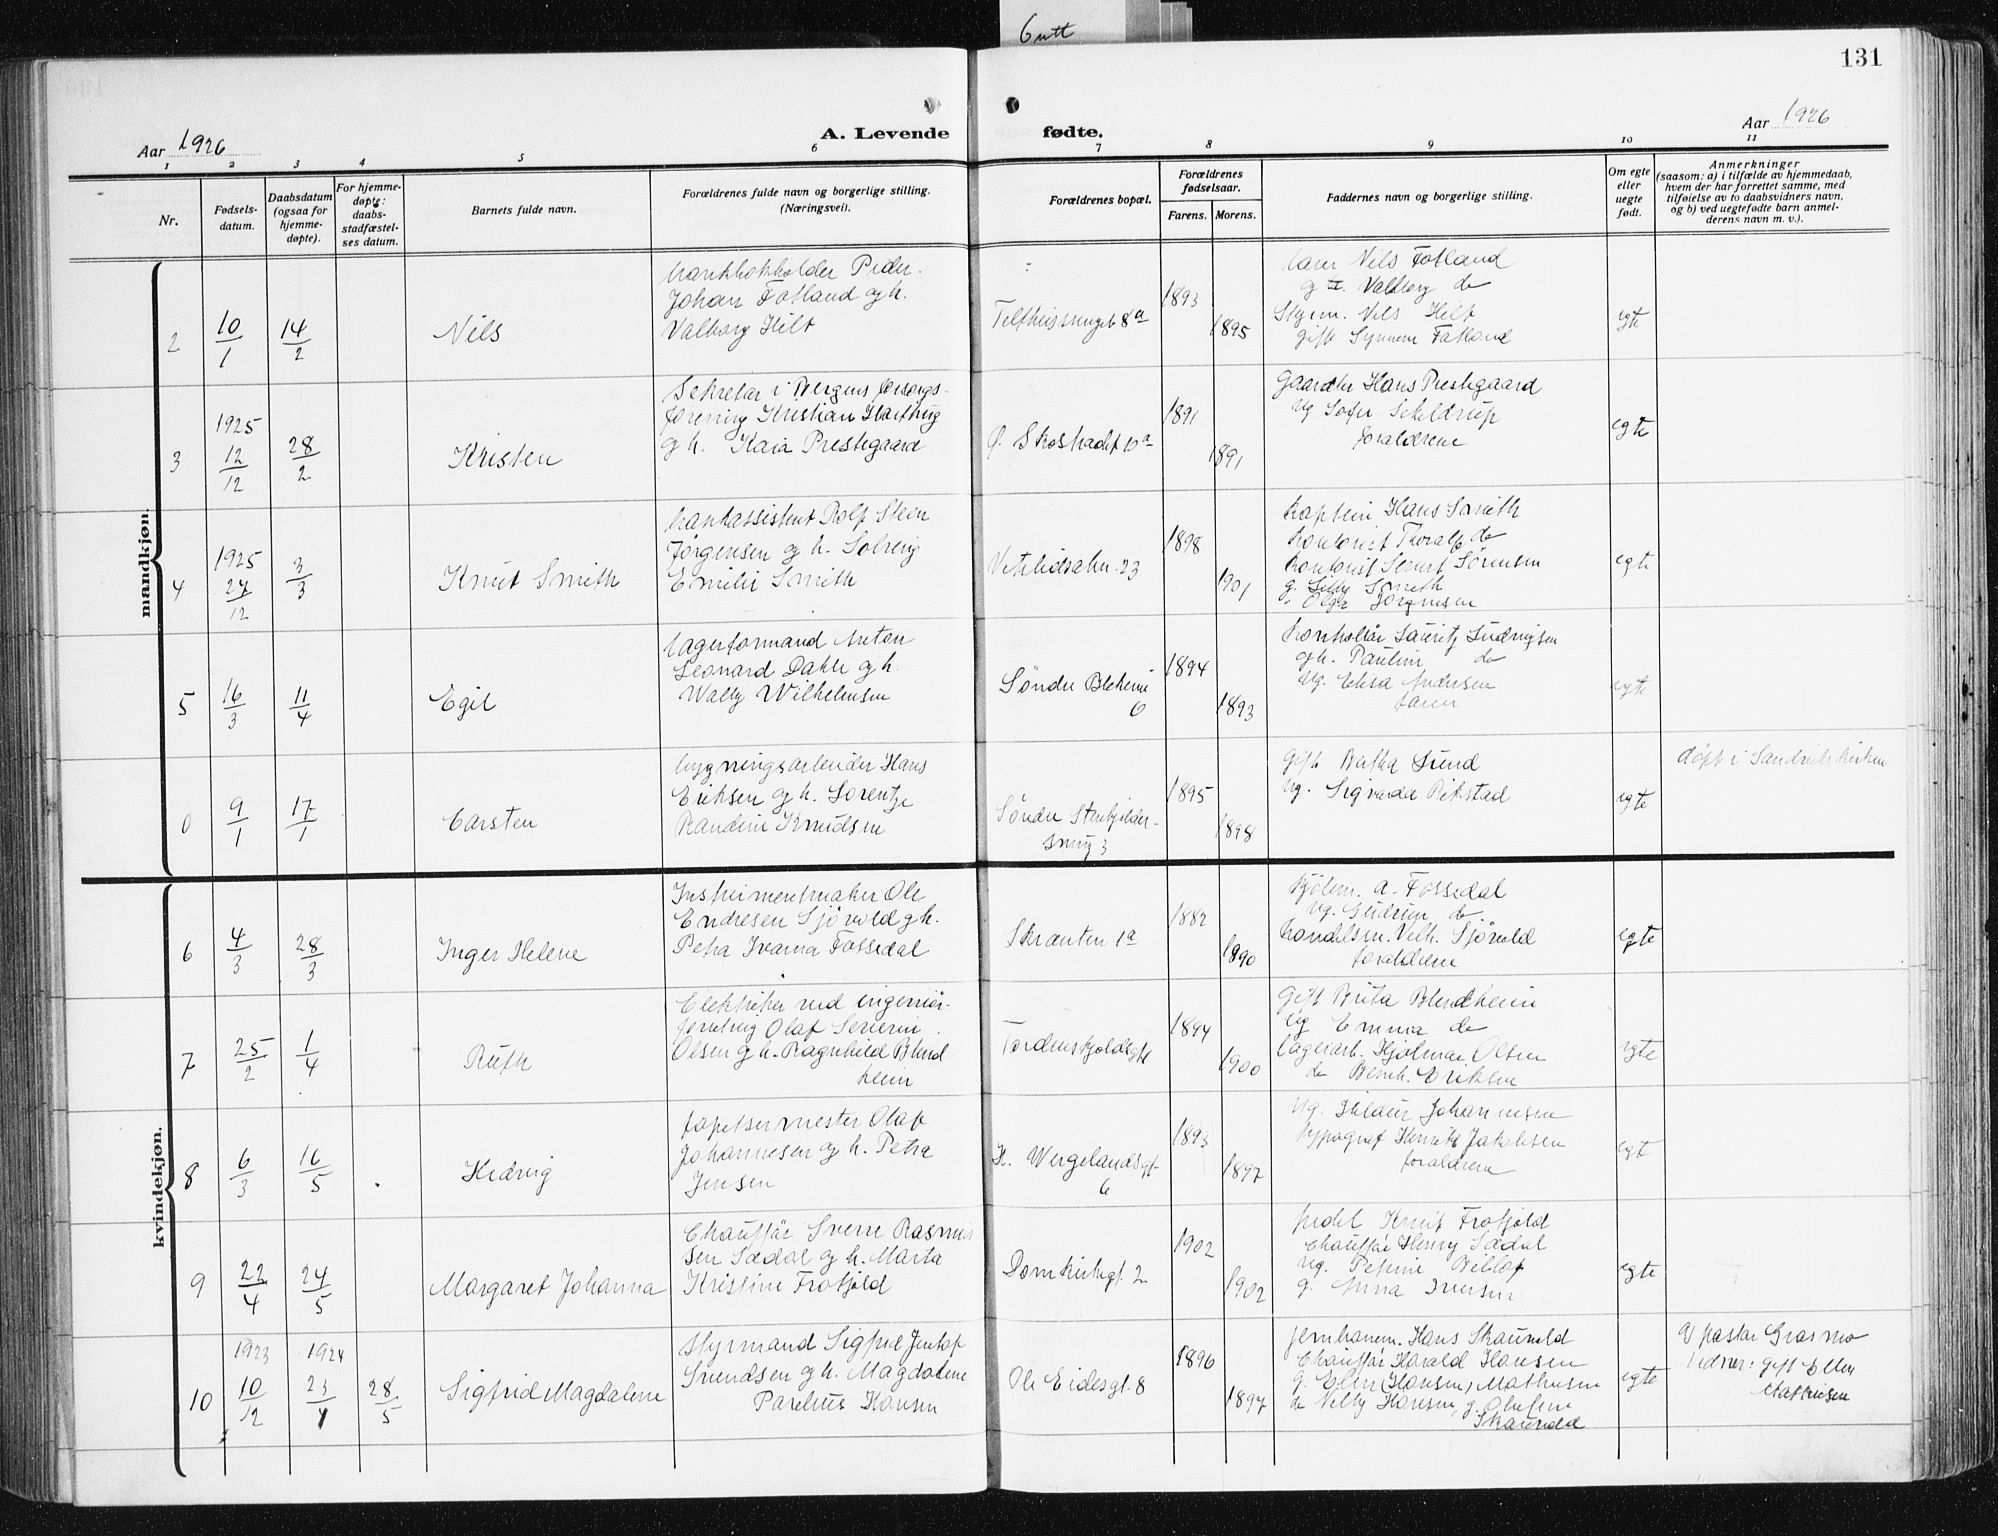 Gutt
131
Aar 1926
A. Levende fødte.
Aar 1926
1 2 3 4 5 6 7 8 9 10 11
Nr.
Fødsels-
datum.
Daabsdatum
(ogsaa for
hjemme-
døpte).
For hjemme-
døpte:
daabs-
stadfæstel-
ses datum.
Barnets fulde navn.
Forældrenes fulde navn og borgerlige stilling.
(Næringsvei).
Forældrenes bopæl.
Forældrenes
fødselsaar.
Farens. Morens.
Faddernes navn og borgerlige stilling.
Om egte
eller
uegte
født.
Anmerkninger
(saasom: a) i tilfælde av hjemmedaab,
hvem der har forrettet samme, med
tilføielse av to daabsvidners navn,
og b) ved uegtefødte barn anmel-
derens navn m. v.).
mandkjøn.
2
10/1
14/2
Nils
bankbokholder Peder
Johan Fotland og h.
Valborg Hilt
8a
1893
1895
Nils Fotland
Valborg do
Nils Hilt
gift Synneve Fatland
egte
3
1925
12/12
28/2
Kristen
Sekretær i Bergens forsorgs-
forening Kristian
og h. Kaia Prestegaard
Ø. Skostrædet 10a
1891
1891
Hans Prestegaard
Schldrup
forældrene
egte
4
1925
27/12
3/3
Knut Smith
bankassistent Rolf Steen
Jørgensen og h. Solveig
Emilie Smith
23
1898
1901
kaptein Hans Smith
kontorist Thoralf do
kontorist Sørensen
g. Smith
" Olga Jørgensen
egte
5
16/3
11/4
Egil
lagerformand Anton
Leonard Dahle og h.
Wally Wilhelmsen
Søndre Blekevei
6
1894
1893
kontrollør Lauritz Ludvigsen
og h. Pauline do
ug. Elisa Andersen
faren
egte
0
9/1
17/1
Carsten
bygningsarbeider Hans
Eriksen og h. Lorentze
Randine Knudsen
Søndre
smug 3
1895
1898
gift Lund
ug. Sigvarda Rikstad
egte
døpt i Sandvikskirken
kvindekjøn.
6
4/3
28/3
Inger Helene
Instrumentmaker Ole
Endresen Sjøvold og h.
Petra Ivarna Fossedal
Skanten 1a
1882
1890
A. Fossedal
ug. Gudrun do
handelsm. Vilh. Sjøvold
forældrene
egte
7
25/2
1/4
Ruth
Elektriker ved ingeniør-
forretning Olaf Severin
Olsen og h. Ragnhild Blind
heim
Tordenskjoldsgt
1894
1900
gift Brita Blindheim
ug Emma do
lagerarb. Hjalmar Olsen
do Bernh. Eriksen
egte
8
6/3
16/5
Hedvig
tapetsermester Olaf
Johannesen og h. Petra
Jensen
H. Wergelandsgt.
6
1893
1897
ug. Hildur Johannesen
typograf Henrik Jakobsen
forældrene
egt
9
22/4
24/5
Margaret Johanna
Chauffør Sverre Rasmus
sen Sædal og h. Marta
Kristine Frotjold
Domkirkegt. 2
1902
1902
pedel Knut Frotjold
Chauffør Henry Sædal
ug. Petrine
g. Anna Iversen
egte
10
1923
10/12
1924
23/4
28/5
Sigfrid Magdalene
Styrmand Sigfrid Jentof
Svendsen og h. Magdalene
Parelius Hansen
Ole Eidesgt. 8
1896
1897
jernbanem. Hans Skaureld
Chauffør Harald Hansen
g. Ellen (Hansen) Mathiesen
do Nelly Hansen, g. Olufine
Skaureld
egte
a) pastor Grasmo
Vidner: gift Ellen
Mathiesen